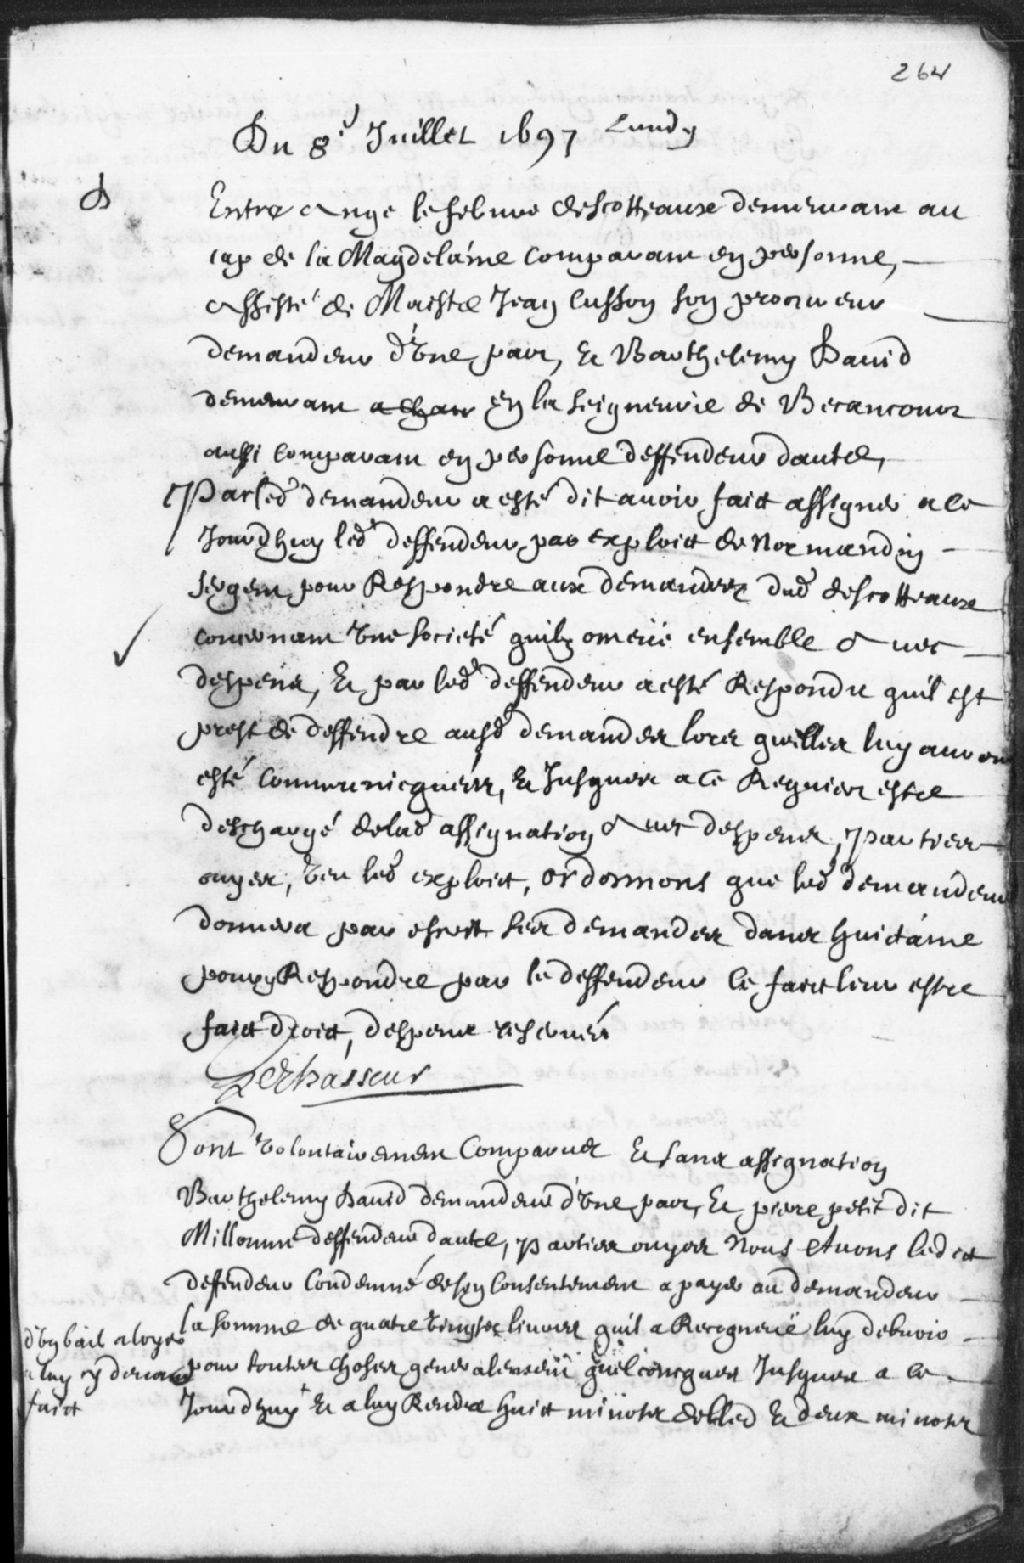 264
Du 8e Juillet 1697 Lundy
Entre Ange lefebure descotteaux demeurant au
cap de la Magdelaine comparant en personne,
Assisté de Maistre Jean Cusson son procureur
demandeur d'vne part, Et Barthelemy Dauid
demeurant en la seigneurie de Becancour
aussi comparant en personne deffendeur dautre,
Par led demandeur a esté dit auoir faict assigner a ce
Jourdhuy led deffendeur par exploict de Normandin
sergent pour Respondre aux demandes dud descotteaux
concernant vne societé quilz ont eüe ensemble Auec
despens, Et par led deffendeur a esté Respondu quil est
prest de deffendre ausd demandes lors quelles luy auront
esté communicquéës, Et Jusques a ce Requiert estre
deschargé de lad assignation Auec despens, Parties
ouyes, veu led exploict, ordonnons que led demandeur
donnera par escrit ses demandes dans huictaine
pour y Respondre par le deffendeur ce faict leur estre
faict droict, despens reserués
LeChasseur
Sont volontairement Comparus Et sans assignation
Barthelemy Dauid demandeur d'vne part, Et pierre petit dit
Millomme deffendeur dautre, parties ouyes Nous Auons ledict
defendeur Condemné de son Consentement a payer au demandeur
la somme de quatre vingts liures quil a Recogneüe luy debuoir
pour toutes choses generalement quelconcques Jusques a ce
Jourdhuy Et a luy Rendre huict minots de bled Et deux minots
d'vn bail a loyer
a luy cy deuant
faict